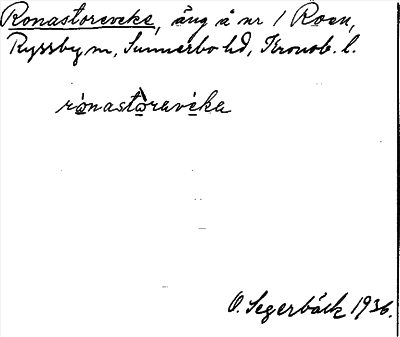 Ronastorevcke, äng å nr 1 Roen,
Ryssby sn, Sunnerbo hd, Kronob. l.
rònastòravìcka
O. Segerbäck 1936.